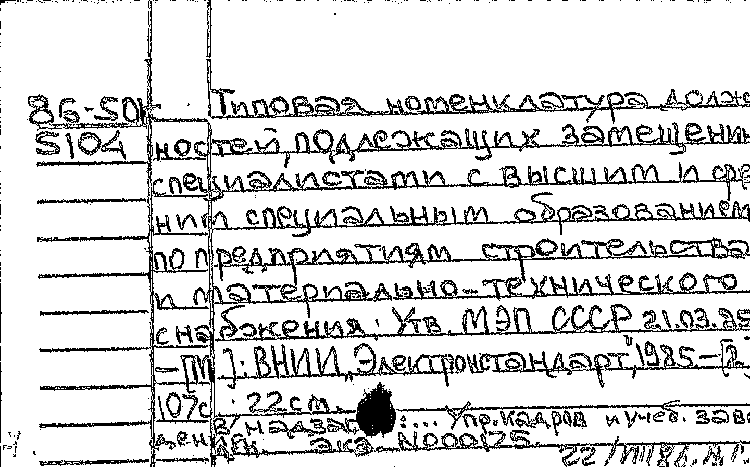 86-50К
5104
Типовая номенклатура долж
ностей, подлежащих замещени
специалистами с высшим и сре
ним специальным образованием
по предприятиям строительства
и материально-технического
снабжения: Утв. МЭП СССР 21.03.85
–[М]: ВНИИ „Электронстандарт", 1985.–[2
107с ; 22см.
В надзаг : ... Упр. кадров и учеб. заве
ден
ДСП. экз. N000125.